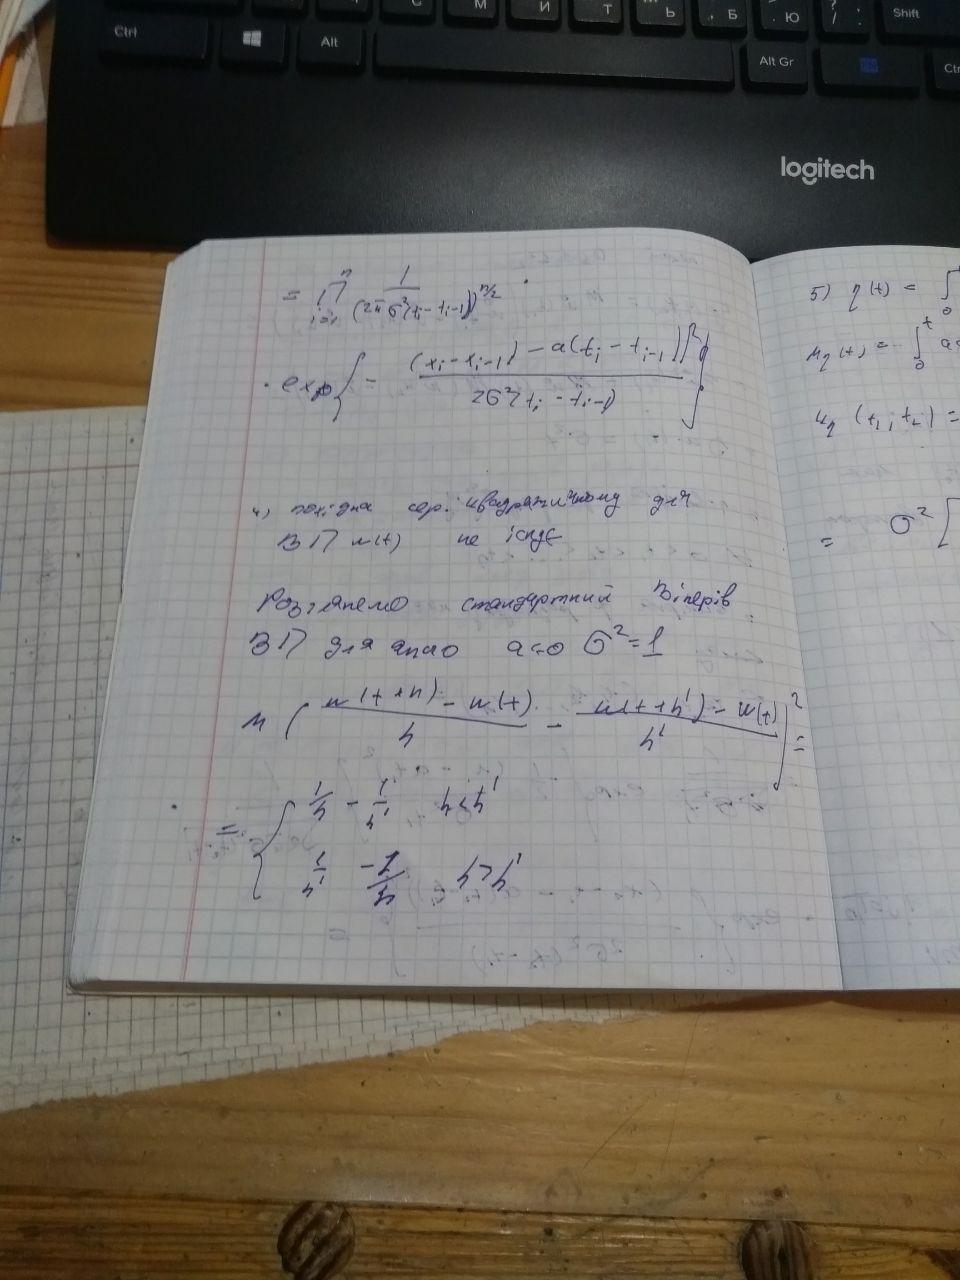 С М И Т Ь , Б . Ю / . Shift
Ctrl Alt Alt Gr Ctr
logitech
= ∏ i=1 n 1 / (2π σ² (ti - ti-1))^n/2
· exp { - ((xi - xi-1) - a(ti - ti-1))² / 2σ²(ti - ti-1) }
4) похідна сер. квадратичному для
ВП w(t) не існує
Розглянемо стандартний Вінерів
ВП для якого a=0 σ²=1
M ( w(t+h) - w(t) / h - w(t+h') - w(t) / h' )² =
= { 1/h - 1/h' h'>h
1/h' - 1/h h>h'
5) η(t) = ∫ 0
Mη(t) = ∫ 0 t a
Kη (t1; t2) =
= σ² [